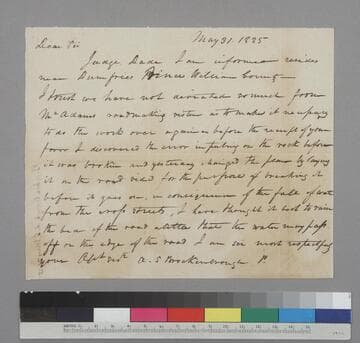 May 31. 1825
Dear Sir
Judge Dade I am informed resides
near Dumfries Prince William County
I trust we have not deviated so much from
Mc Adams roadmaking system as to make it necessary
to do the work over again as before the receipt of your
favor I discovered the error in putting on the rock before
it was broken and yesterday changed the plan by laying
it on the road sides for the purpose of breaking it
before it goes on. in consequence of the fall of water
from the cross streets, I have thought it best to raise
the bed of the road a little that the water may pass
off on the edge of the road I am sir most respectfully
your Obt Svt A. S Brockenbrough P.